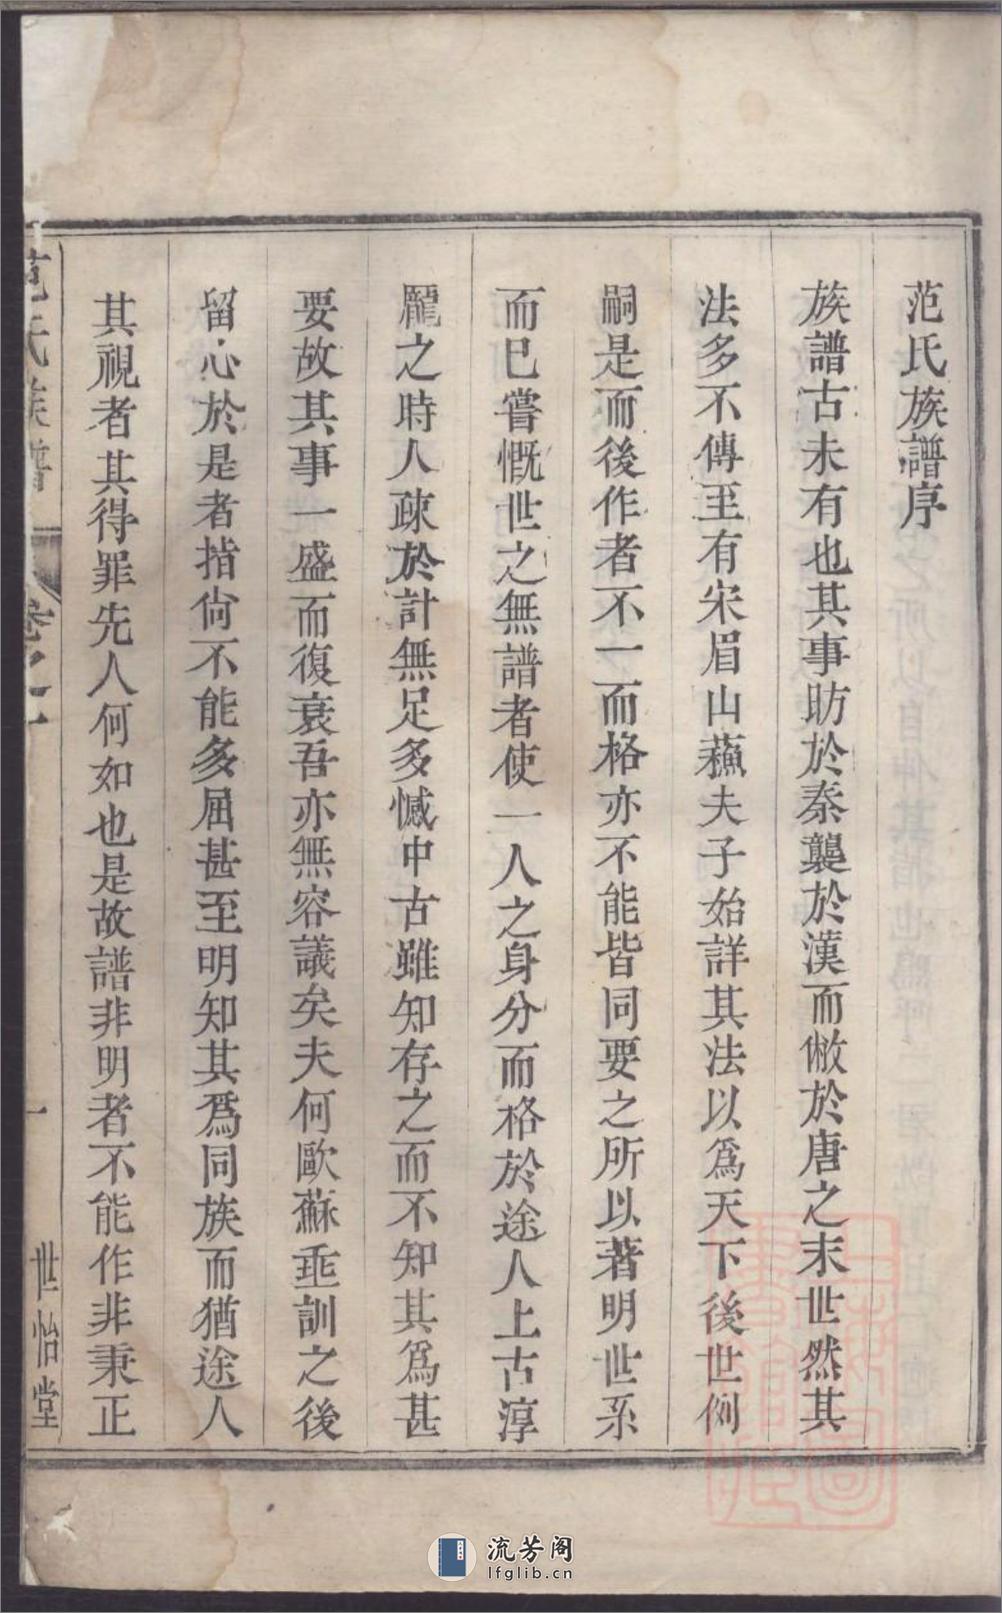 范氏族譜序
族譜古未有也其事昉於秦襲於漢而敝於唐之末世然其
法多不傳至有宋眉山蘓夫子始詳其法以爲天下後世例
嗣是而後作者不一而格亦不能皆同要之所以著明世系
而已嘗慨世之無譜者使一人之身分而格於途人上古淳
龐之時人疎於計無足多憾中古雖知存之而不知其爲甚
要故其事一盛而復衰吾亦無容議矣夫何歐蘇垂訓之後
留心於是者指尙不能多屈甚至明知其爲同族而猶途人
其視者其得罪先人何如也是故譜非明者不能作非秉正
范氏族譜
卷之一
一
世怡堂
流芳阁
lfglib.cn